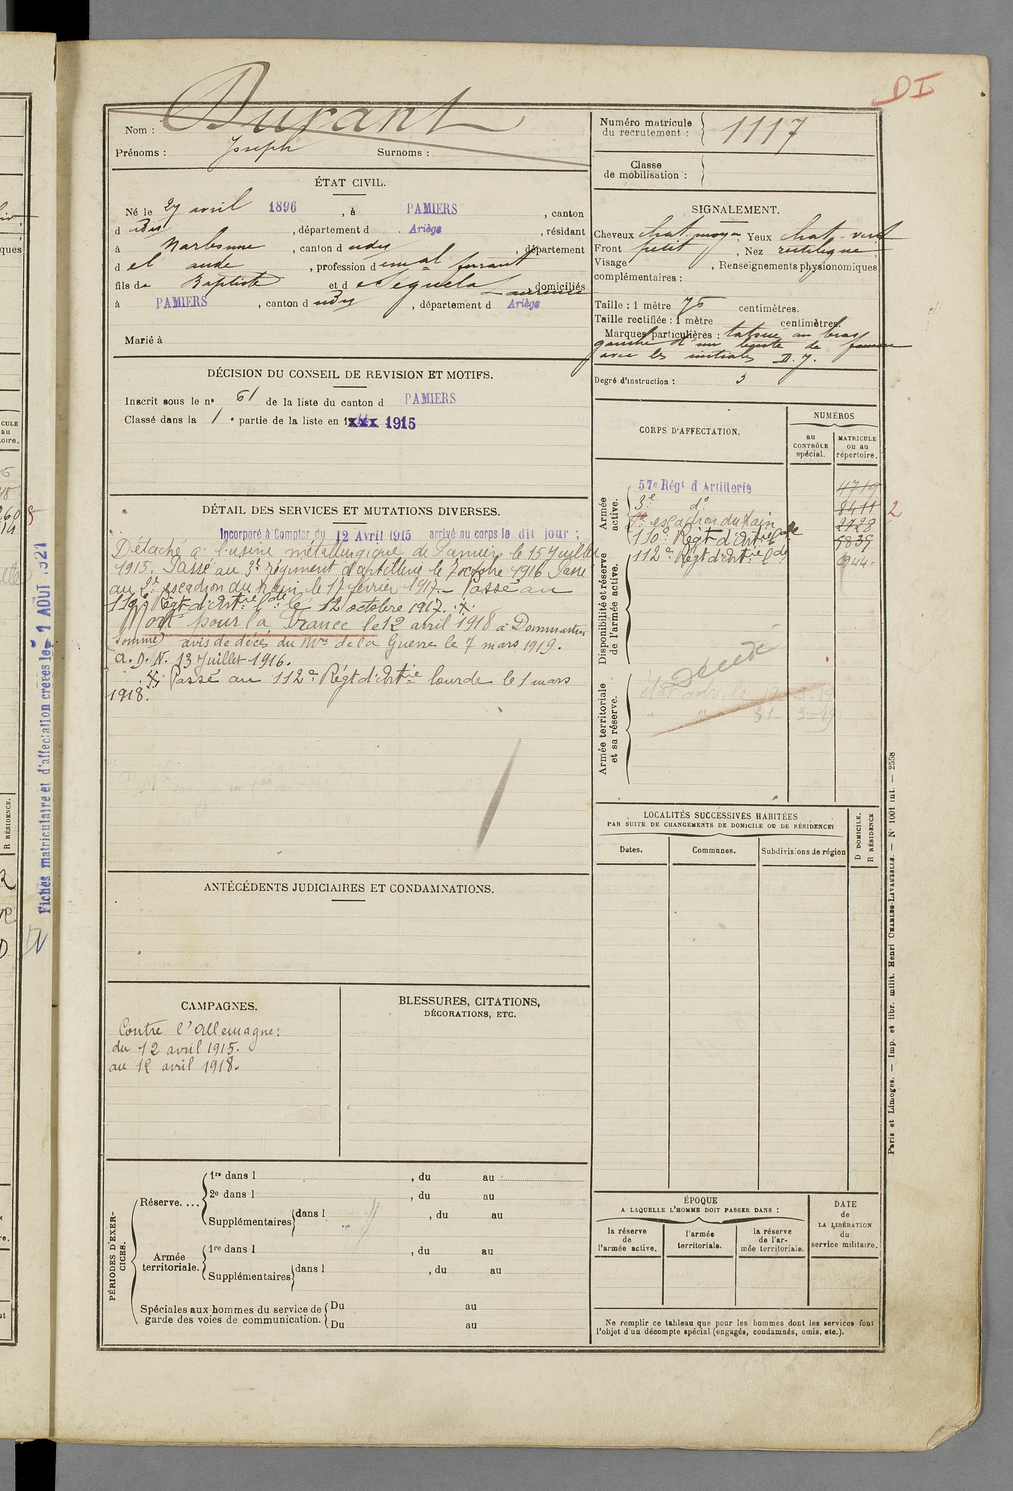 DI
Nom : Durant
Prénoms : Joseph Surnoms :
Numéro matricule
du recrutement : 1117
Classe
de mobilisation :
ÉTAT CIVIL.
Né le 27 avril 1896, à PAMIERS, canton
d udy, département d Ariège, résidant
à Narbonne, canton d udy, département
d el aude, profession d ferrant
fils de Baptiste et d domiciliés
à PAMIERS, canton d udy, département d Ariège
Marié à
SIGNALEMENT.
Cheveux chat. moyen, Yeux chat-vert
Front petit, Nez rectiligne
Visage , Renseignements physionomiques
complémentaires :
Taille : 1 mètre 75 centimètres.
Taille rectifiée : 1 mètre centimètres.
Marques particulières : tatoué au bras
gauche d'un buste de femme
avec les initiales D. J.
Degré d'instruction : 3
DÉCISION DU CONSEIL DE REVISION ET MOTIFS.
Inscrit sous le n° 61 de la liste du canton d PAMIERS
Classé dans la 1e partie de la liste en 1915
CORPS D'AFFECTATION.
NUMÉROS
au
CONTRÔLE
spécial.
MATRICULE
ou au
répertoire.
Armée
active.
57e Régt d'Artillerie 4719
3e do 8411 2
2e escadron du train 2728
110e Régt d'Artrie lde 9839
112e Régt d'Artrie lde 6944
Disponibilité et réserve
de l'armée active.
Armée territoriale
et sa réserve.
DÉTAIL DES SERVICES ET MUTATIONS DIVERSES.
Incorporé à Compter du 12 Avril 1915 arrivé au corps le dit jour ;
Détaché à l'usine métallurgique de Pamiers le 15 Juillet
1915. Passé au 3e régiment d'artillerie le 7 octobre 1916. Passé
au 2e escadron du train le 17 février 1917. Passé au
110e Régt d'Artrie lde le 12 octobre 1917.
Mort pour la France le 12 avril 1918 à Dommartin
(Somme) avis de décès du Mre de la Guerre le 7 mars 1919.
A. D. N. 13 Juillet 1916.
Passé au 112e Régt d'Artrie lourde le 1 mars
1918.
LOCALITÉS SUCCESSIVES HABITÉES
PAR SUITE DE CHANGEMENTS DE DOMICILE OU DE RÉSIDENCE
Dates. Communes. Subdivisions de région
D DOMICILE.
R RÉSIDENCE
ANTÉCÉDENTS JUDICIAIRES ET CONDAMNATIONS.
CAMPAGNES.
Contre l'Allemagne :
du 12 avril 1915.
au 12 avril 1918.
BLESSURES, CITATIONS,
DÉCORATIONS, ETC.
PÉRIODES D'EXERCICES.
Réserve....
1re dans l , du au
2e dans l , du au
Supplémentaires dans l , du au
Armée
territoriale.
1re dans l , du au
Supplémentaires dans l , du au
Spéciales aux hommes du service de
garde des voies de communication.
Du au
Du au
ÉPOQUE
A LAQUELLE L'HOMME DOIT PASSER DANS :
la réserve
de
l'armée active.
l'armée
territoriale.
la réserve
de l'ar-
mée territoriale.
DATE
de
LA LIBÉRATION
du
service militaire.
Ne remplir ce tableau que pour les hommes dont les services font
l'objet d'un décompte spécial (engagés, condamnés, omis, etc.).
Paris et Limoges. — Imp. et libr. milit. Henri CHARLES-LAVAUZELLE. — N° 1001 int. — 2558
Fiches matriculaire et d'affectation créées le 1 AOUT 1921